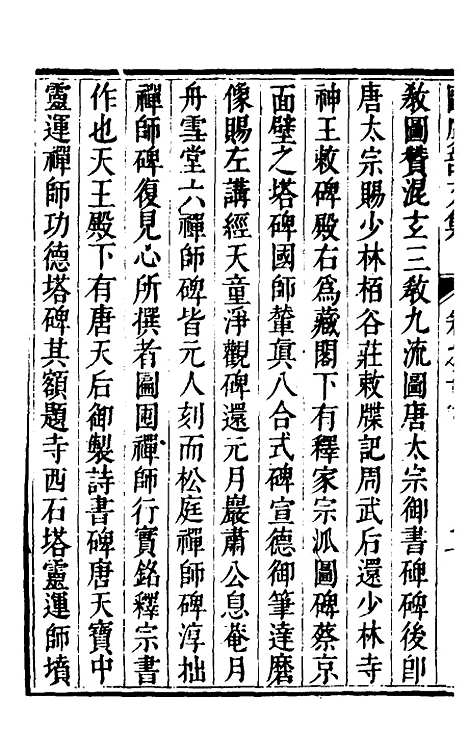 教圖贊混玄三教九流圖唐太宗御書碑碑後卽
唐太宗賜少林栢谷莊敕牒記周武后還少林寺
神王敕碑殿右爲藏閣下有釋家宗派圖碑蔡京
面壁之塔碑國師輦眞八合式碑宣德御筆達磨
像賜左講經天童淨觀碑還元月巖肅公息菴月
舟雪堂六禪師碑皆元人刻而松庭禪師碑淳拙
禪師碑復見心所撰者匾囤禪師行實銘釋宗書
作也天王殿下有唐天后御製詩書碑唐天寶中
靈運禪師功德塔碑其額題寺西石塔靈運師墳